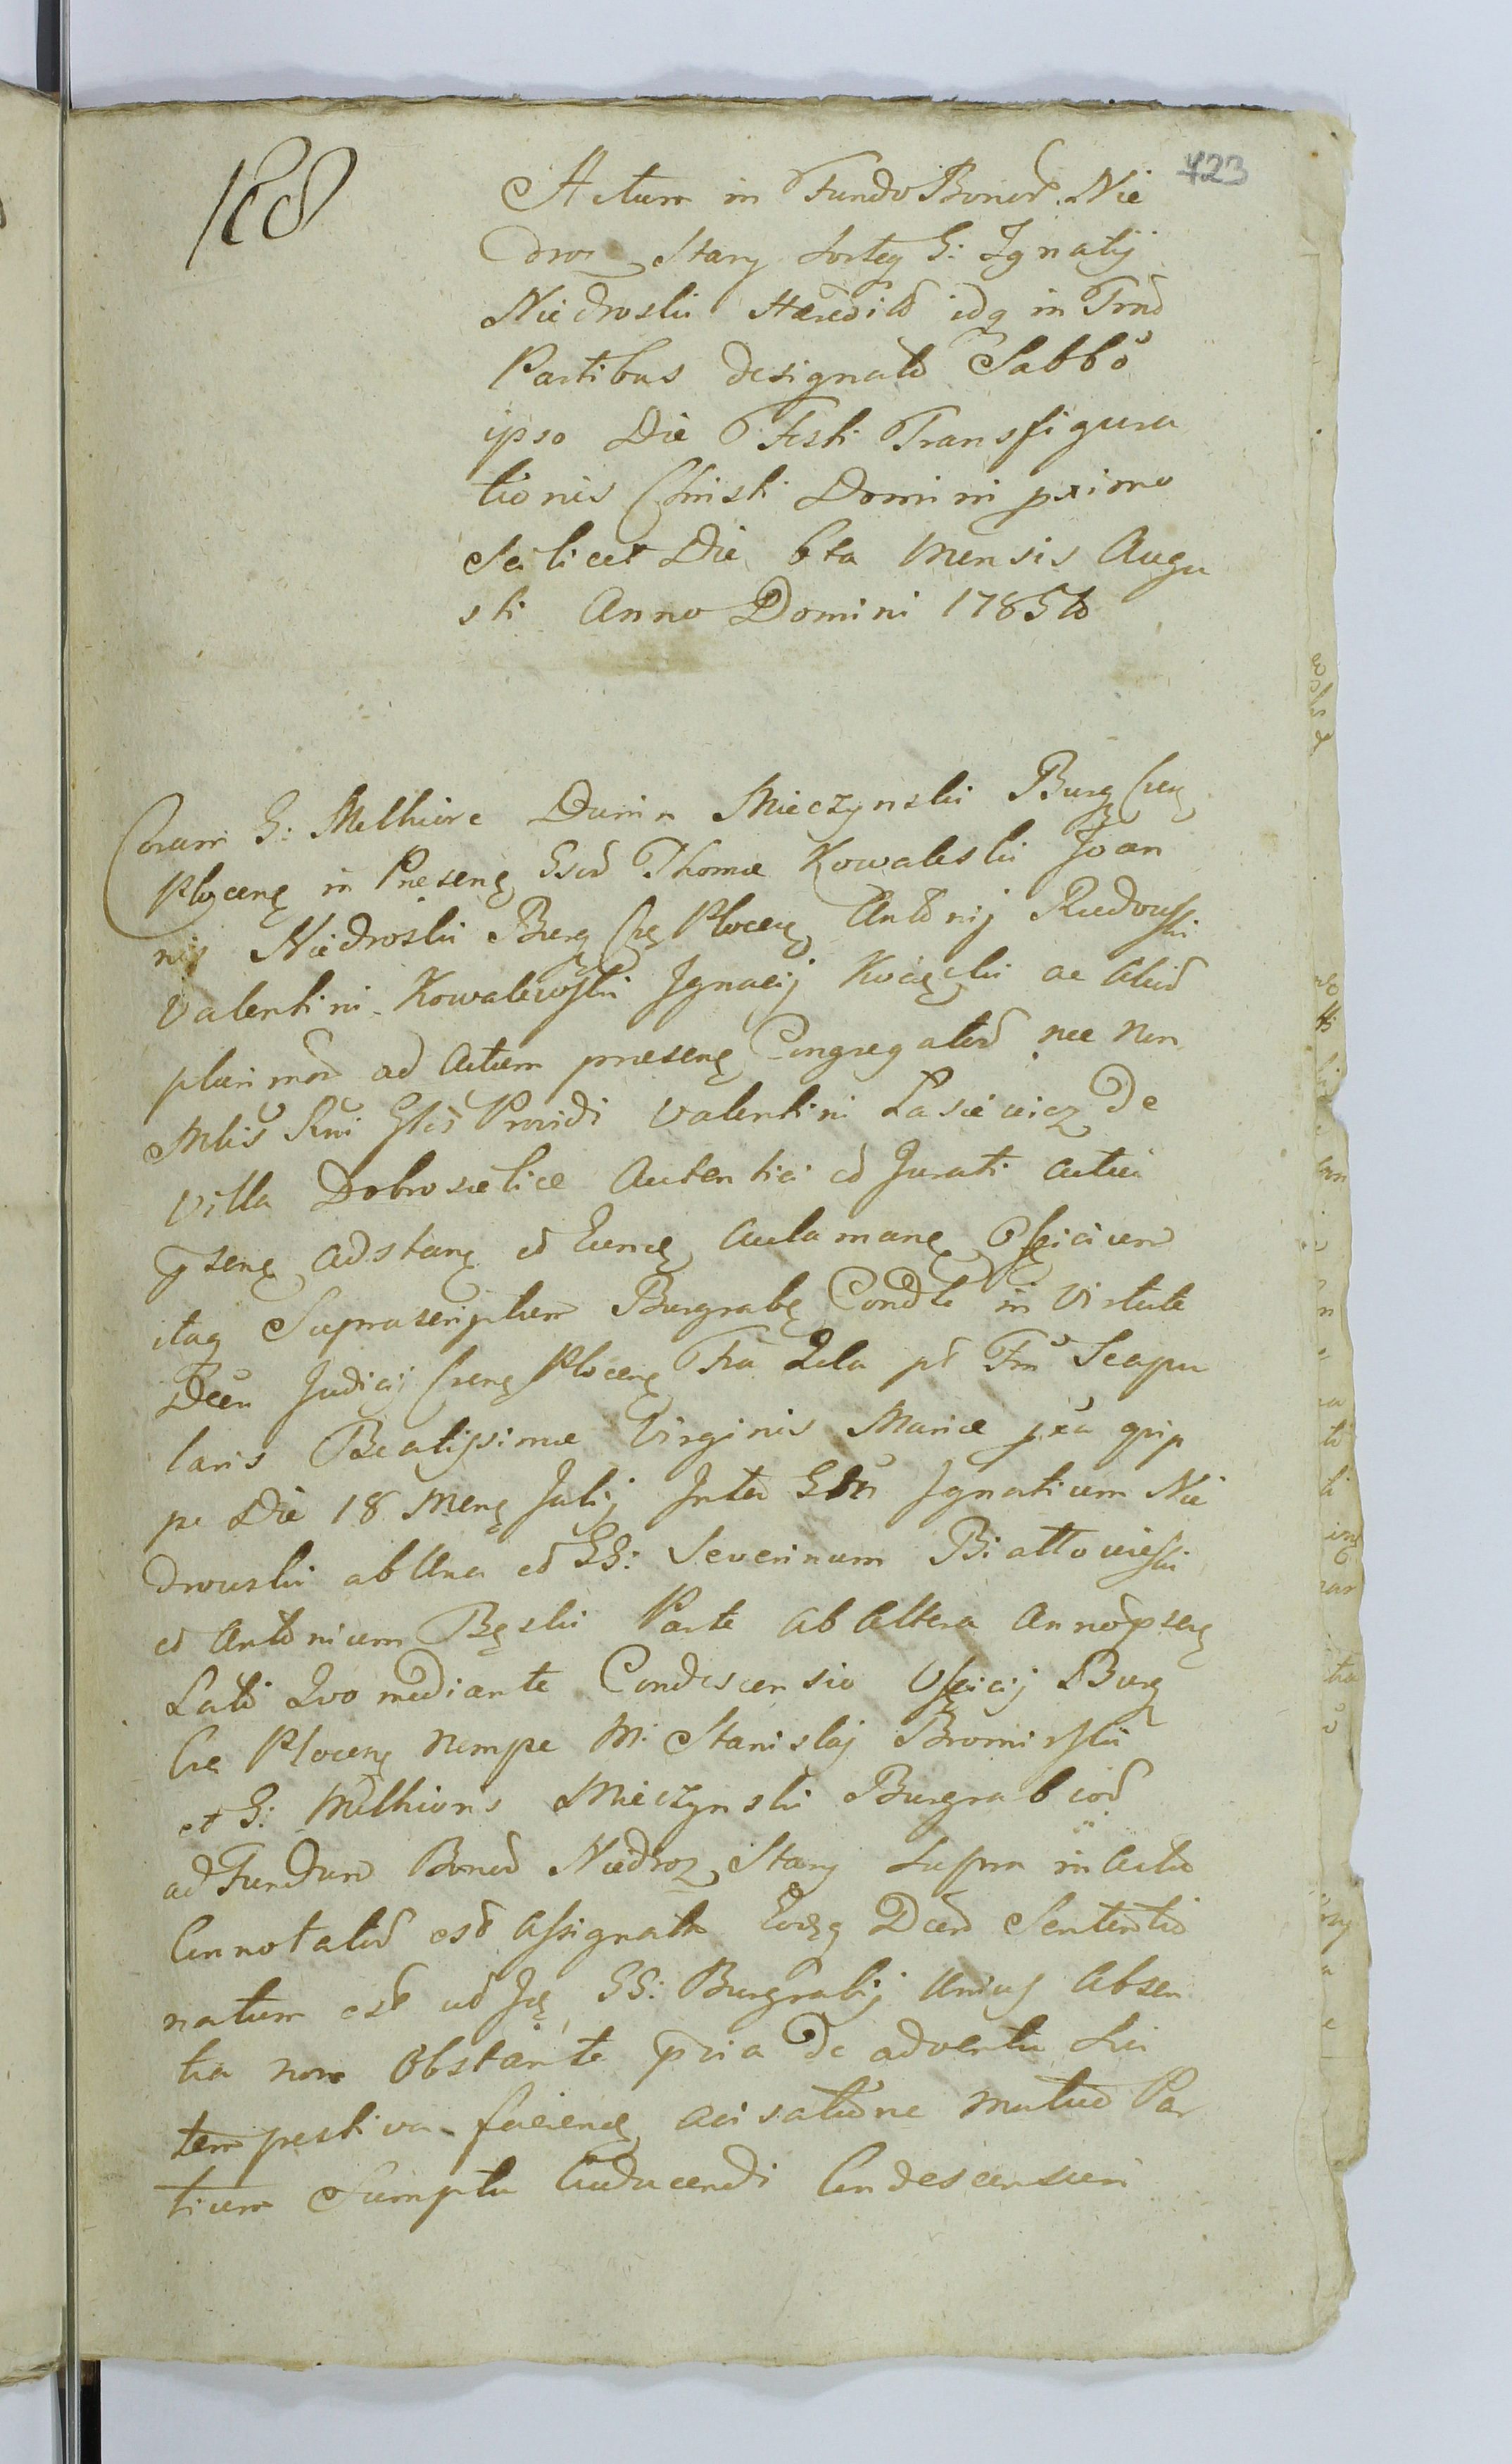 188
423
Actum in Fundo Bonor. Nie
droz Stary Sorteq G: Ignatij
Niedroski Haeredit idq in Trad
Partibus designato Sabbo
ipso Die Festi Transfigura
tionis Christi Domini primo
Scilicet Die 6ta Mensis Augu
sti Anno Domini 1785to
Coram G: Melhiore Dunin Mieczynski Burg
Plocens in Presen Thomae Kowaleski Joan
nis Niedroski Burg Plocen Antonij Rudowski
Valentini Kowalewski Ignacij ac Aliod
plurimor ad Actum praesen Congregator nec non
Mlis Rni Providi Valentini Lasiewicz De
Villa Dobrosielice Autentici et Jurati Actui
psen adstan et Eunde Aclaman Officium
itaq Suprascriptum Burgrabe Condto in Virtute
Decti Judicij Plocen pt Fm Scapu
laris Beatissimae Virginis Mariae pxa quip
pe Die 18 Mens Julij Inter Ignatium Nie
drouski ab Una et GG: Severinum Białłowieski
et Antonium Bęski Parte ab Altera Anno psen
Lati Quo mediante Condescensio Officij Burg
Plocen nempe M: Stanislaj Bromirski
et G: Melhioris Mieczynski Burgrabior
ad Fundum Bonor Niedroz Stary Supra in Actu
Connotator est Assignata Eodq Dect Sententio
natum est ut GG: Burgrabij Unius Absen
tia non Obstante pria De adventu Sui
tempestiva faciend Avisatione mutuo Par
tium Sumptu Conducendi Condescensum